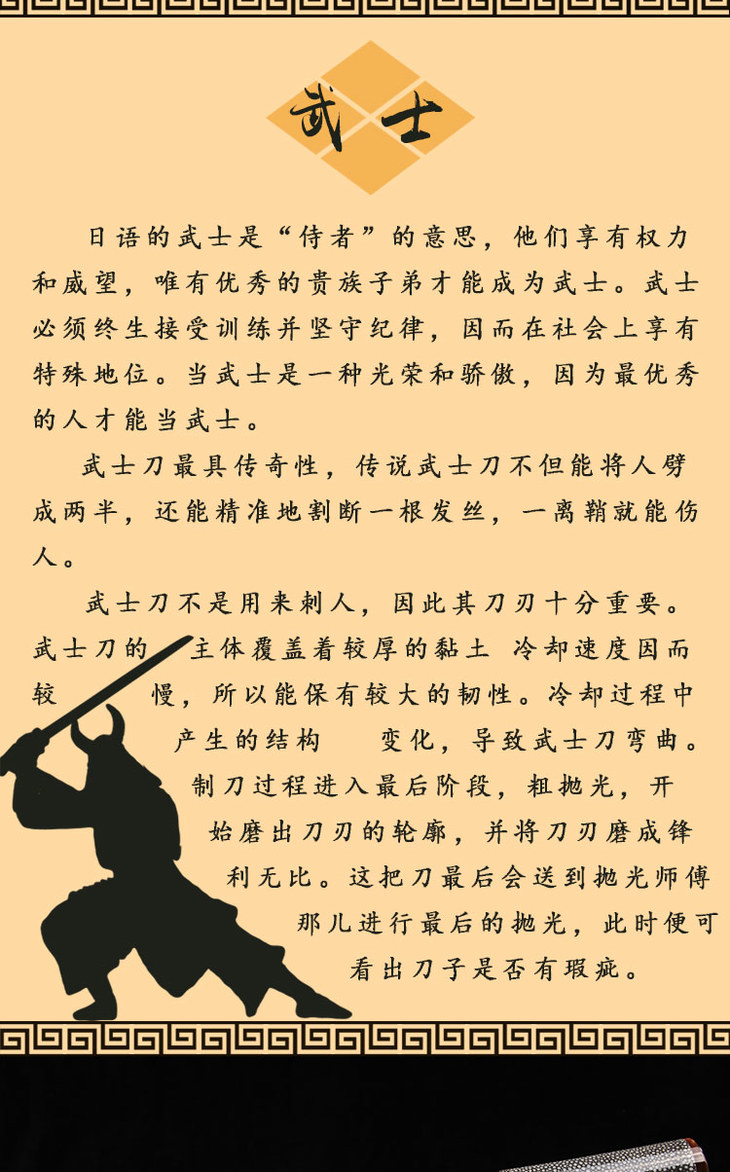 武士
日语的武士是“侍者”的意思，他们享有权力
和威望，唯有优秀的贵族子弟才能成为武士。武士
必须终生接受训练并坚守纪律，因而在社会上享有
特殊地位。当武士是一种光荣和骄傲，因为最优秀
的人才能当武士。
武士刀最具传奇性，传说武士刀不但能将人劈
成两半，还能精准地割断一根发丝，一离鞘就能伤
人。
武士刀不是用来刺人，因此其刀刃十分重要。
武士刀的 主体覆盖着较厚的黏土 冷却速度因而
较 慢，所以能保有较大的韧性。冷却过程中
产生的结构 变化，导致武士刀弯曲。
制刀过程进入最后阶段，粗抛光，开
始磨出刀刃的轮廓，并将刀刃磨成锋
利无比。这把刀最后会送到抛光师傅
那儿进行最后的抛光，此时便可
看出刀子是否有瑕疵。